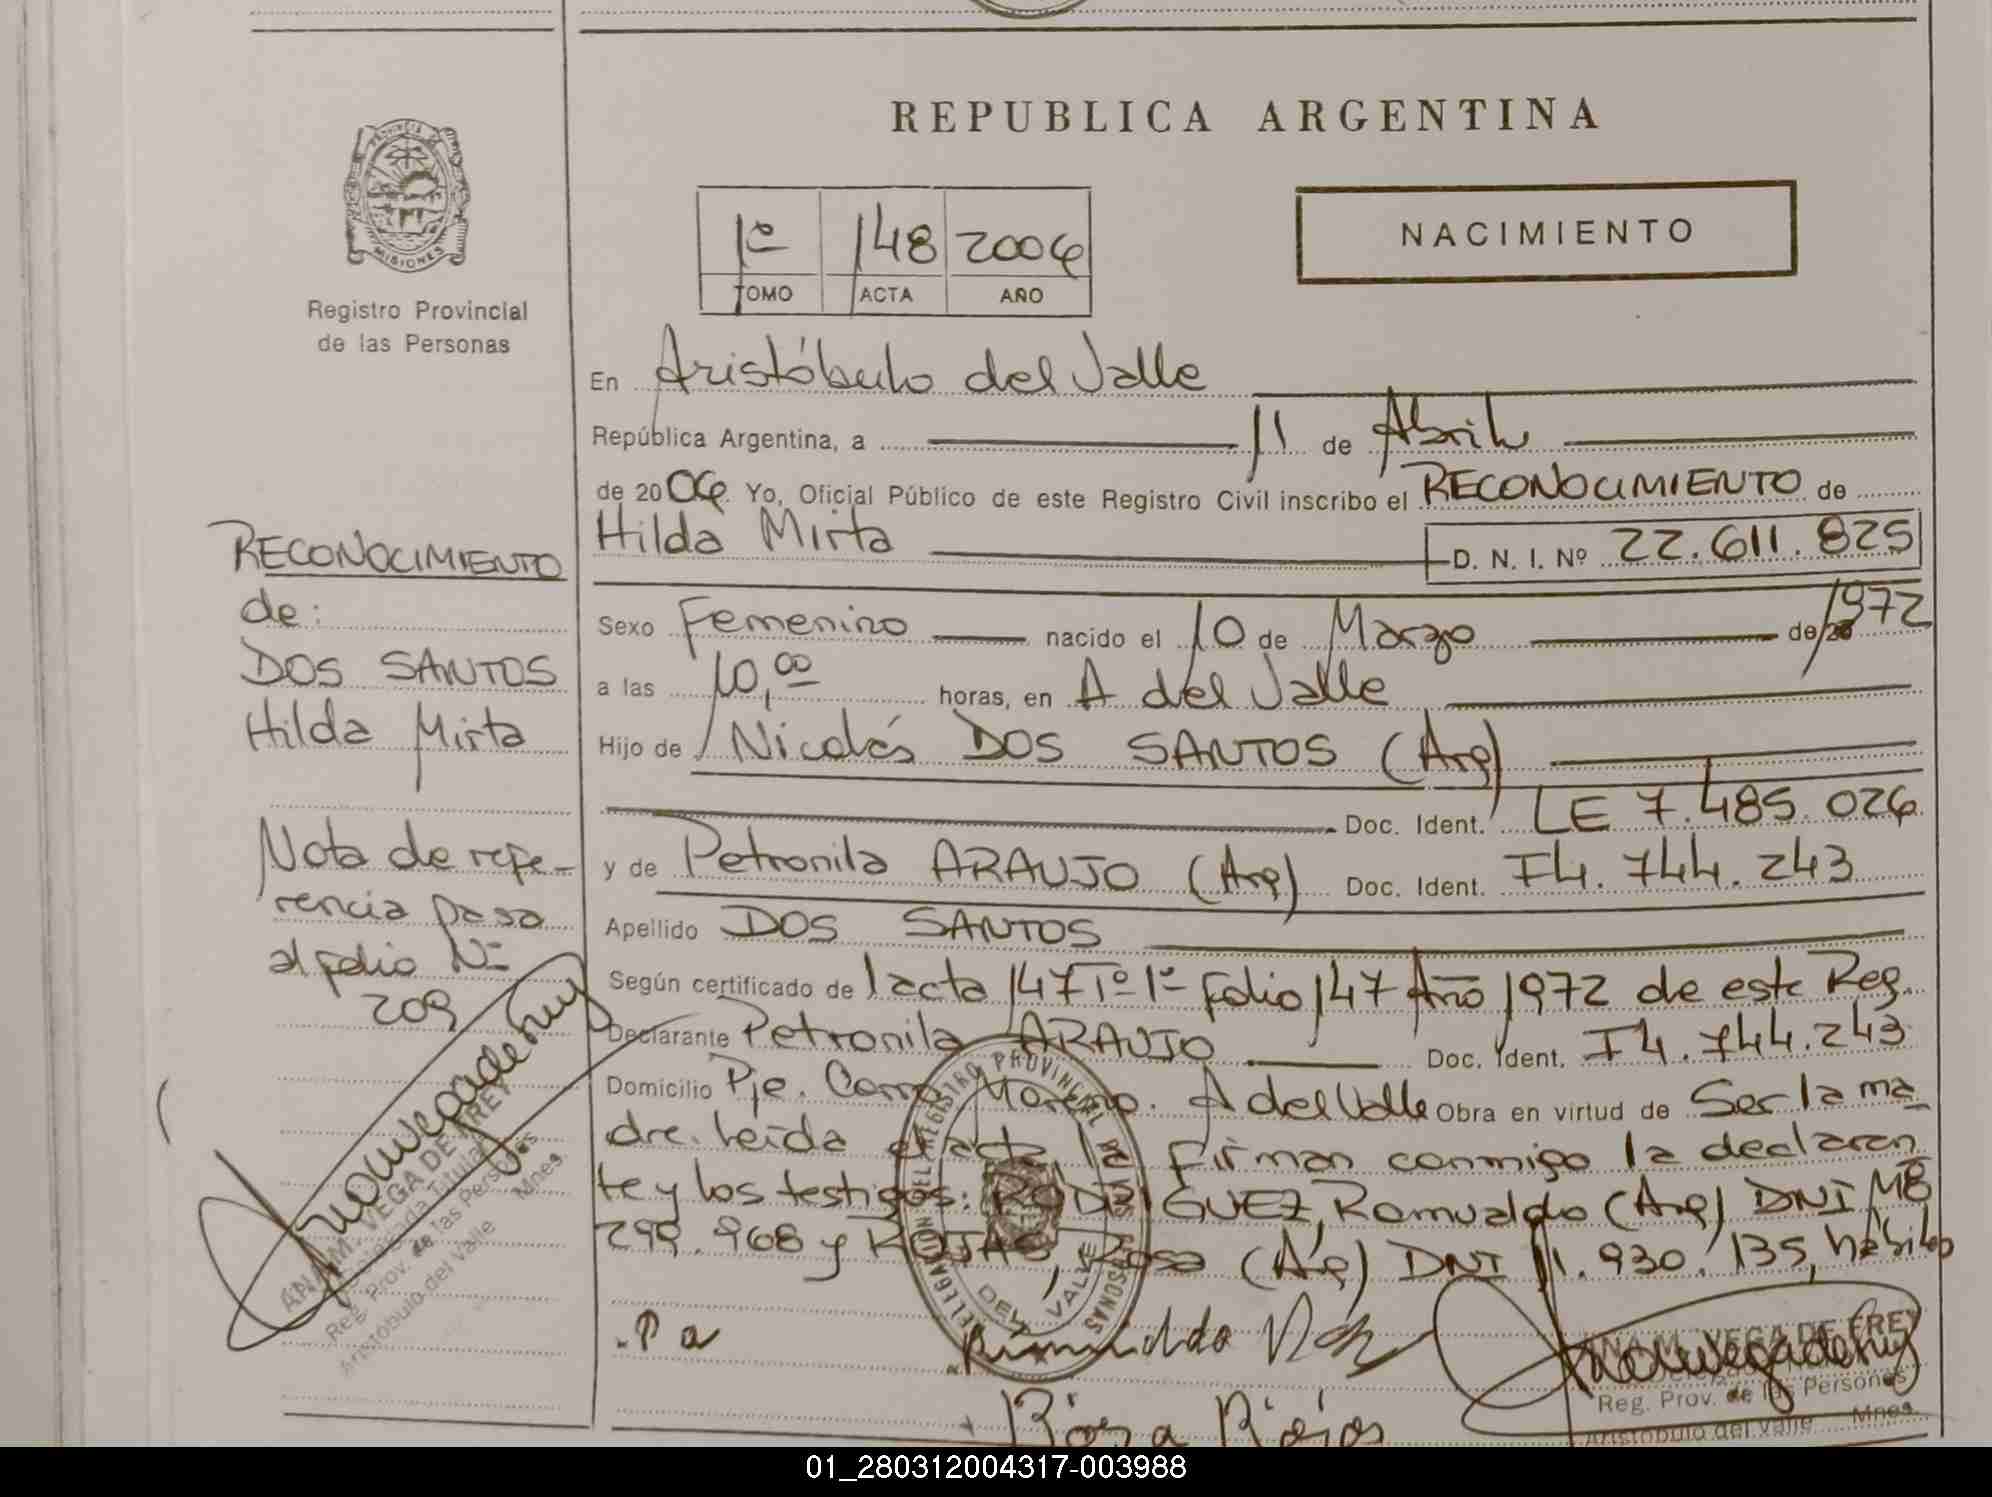 REPUBLICA ARGENTINA
PROVINCIA DE MISIONES
Registro Provincial
de las Personas
1º 148 2006
TOMO ACTA AÑO
NACIMIENTO
En Aristóbulo del Valle
República Argentina, a 11 de Abril
de 2006 Yo, Oficial Público de este Registro Civil inscribo el RECONOCIMIENTO de
Hilda Mirta D. N. I. Nº 22.611.825
Sexo Femenino nacido el 10 de Marzo de 1972
a las 10,00 horas, en A del Valle
Hijo de Nicolás DOS SANTOS (Arg)
Doc. Ident. LE 7.485.026
y de Petronila ARAUJO (Arg) Doc. Ident. F4.744.243
Apellido DOS SANTOS
Según certificado de 1 acta 147 Tº 1º Folio 147 Año 1972 de este Reg.
Declarante Petronila ARAUJO Doc. Ident. F4.744.243
Domicilio Pje. Moreno. A del Valle Obra en virtud de Ser la ma
dre. Leída el acta la firman conmigo la declaran
te y los testigos: RODRIGUEZ, Romualdo (Arg) DNI M8
299.968 y ROJAS, Rosa (Arg) DNI 11.930.135, hábiles
RECONOCIMIENTO
de:
DOS SANTOS
Hilda Mirta
Nota de refe-
rencia pasa
al folio Nº
209
ANA M. VEGA DE FREY
Delegada Titular
Reg. Prov. de las Personas
Aristóbulo del Valle Mnes.
DELEGACION DEL REGISTRO PROVINCIAL DE LAS PERSONAS
DEL VALLE
P a
Rosa Rojas
ANA M. VEGA DE FREY
Reg. Prov. de las Personas
Aristóbulo del Valle Mnes.
01_280312004317-003988